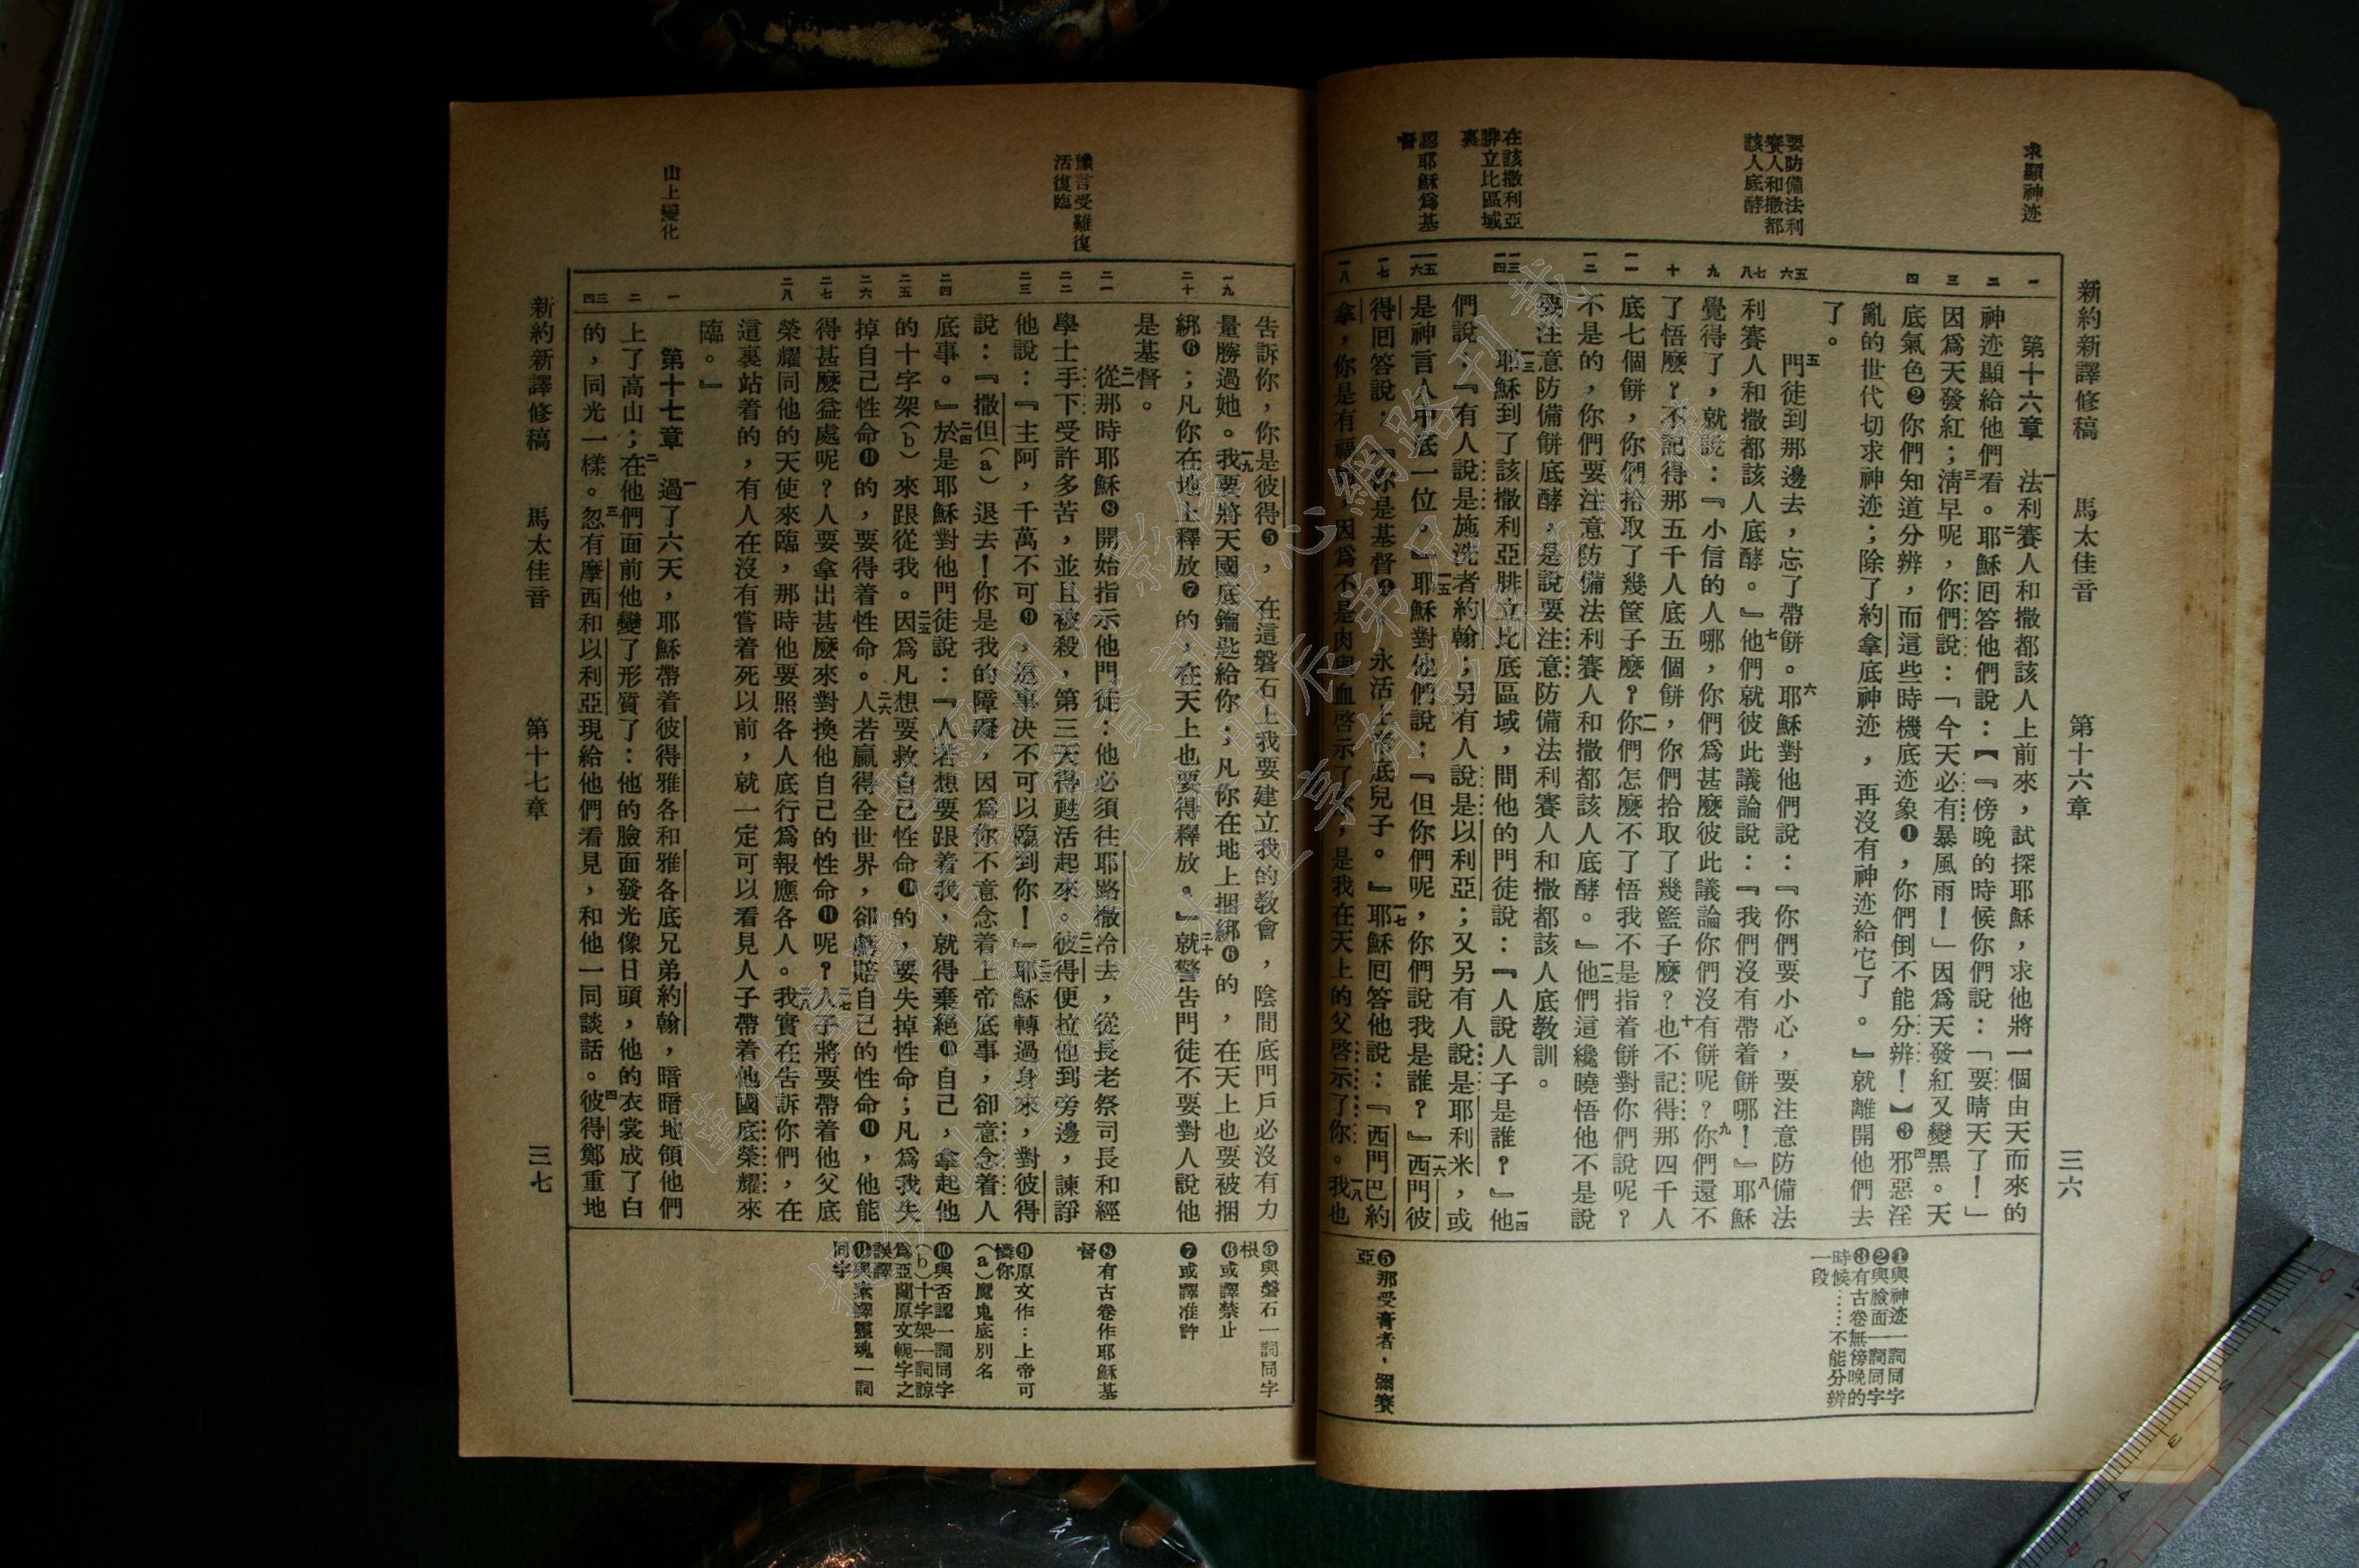 新約新譯修稿 馬太佳音 第十六章 三六
求顯神迹
要防備法利
賽人和撒都
該人底酵
在該撒利亞
腓立比區域
裏
認耶穌爲基
督
第十六章 法利賽人和撒都該人上前來，試探耶穌，求他將一個由天而來的
神迹顯給他們看。耶穌囘答他們說：【『傍晚的時候你們說：「要晴天了！」
因爲天發紅；淸早呢，你們說：「今天必有暴風雨！」因爲天發紅又變黑。天
底氣色❷你們知道分辨，而這些時機底迹象❶，你們倒不能分辨！】❸邪惡淫
亂的世代切求神迹；除了約拿底神迹，再沒有神迹給它了。』就離開他們去
了。
門徒到那邊去，忘了帶餅。耶穌對他們說：『你們要小心，要注意防備法
利賽人和撒都該人底酵。』他們就彼此議論說：『我們沒有帶着餅哪！』耶穌
覺得了，就說：『小信的人哪，你們爲甚麼彼此議論你們沒有餅呢？你們還不
了悟麼？不記得那五千人底五個餅，你們拾取了幾籃子麼？也不記得那四千人
底七個餅，你們拾取了幾筐子麼？你們怎麼不了悟我不是指着餅對你們說呢？
不是的，你們要注意防備法利賽人和撒都該人底酵。』他們這纔曉悟他不是說
要注意防備餅底酵，是說要注意防備法利賽人和撒都該人底教訓。
耶穌到了該撒利亞腓立比底區域，問他的門徒說：『人說人子是誰？』他
們說：『有人說是施洗者約翰；另有人說是以利亞；又另有人說是耶利米，或
是神言人中底一位。』耶穌對他們說：『但你們呢，你們說我是誰？』西門彼
得囘答說：『你是基督❹，永活上帝底兒子。』耶穌囘答他說：『西門巴約
拿，你是有福的，因爲不是肉與血啓示了你，是我在天上的父啓示了你。我也
❶與神迹一詞同字
❷與臉面一詞同字
❸有古卷無傍晚的
時候……不能分辨
一段
❺那受膏者，彌賽
亞
豫言受難復
活復臨
山上變化
告訴你，你是彼得❺，在這磐石上我要建立我的教會，陰間底門戶必沒有力
量勝過她。我要將天國底鑰匙給你；凡你在地上捆綁❻的，在天上也要被捆
綁❻；凡你在地上釋放❼的，在天上也要得釋放。』就警告門徒不要對人說他
是基督。
從那時耶穌❽開始指示他門徒：他必須往耶路撒冷去，從長老祭司長和經
學士手下受許多苦，並且被殺，第三天得甦活起來。彼得便拉他到旁邊，諫諍
他說：『主阿，千萬不可❾，這事決不可以臨到你！』耶穌轉過身來，對彼得
說：『撒但(a)退去！你是我的障礙，因爲你不意念着上帝底事，卻意念着人
底事。』於是耶穌對他門徒說：『人若想要跟着我，就得棄絕❿自己，拿起他
的十字架(b)來跟從我。因爲凡想要救自己性命⓫的，要失掉性命；凡爲我失
掉自己性命⓫的，要得着性命。人若贏得全世界，卻虧賠自己的性命⓫，他能
得甚麼益處呢？人要拿出甚麼來對換他自己的性命⓫呢？人子將要帶着他父底
榮耀同他的天使來臨，那時他要照各人底行爲報應各人。我實在告訴你們，在
這裏站着的，有人在沒有嘗着死以前，就一定可以看見人子帶着他國底榮耀來
臨。』
第十七章 過了六天，耶穌帶着彼得雅各和雅各底兄弟約翰，暗暗地領他們
上了高山；在他們面前他變了形質了：他的臉面發光像日頭，他的衣裳成了白
的，同光一樣。忽有摩西和以利亞現給他們看見，和他一同談話。彼得鄭重地
❺與磐石一詞同字
根
❻或譯禁止
❼或譯准許
❽有古卷作耶穌基
督
❾原文作：上帝可
憐你
(a)魔鬼底別名
❿與否認一詞同字
(b)十字架一詞諒
爲亞蘭原文軛字之
誤譯
⓫與素譯靈魂一詞
同字
新約新譯修稿 馬太佳音 第十七章 三七